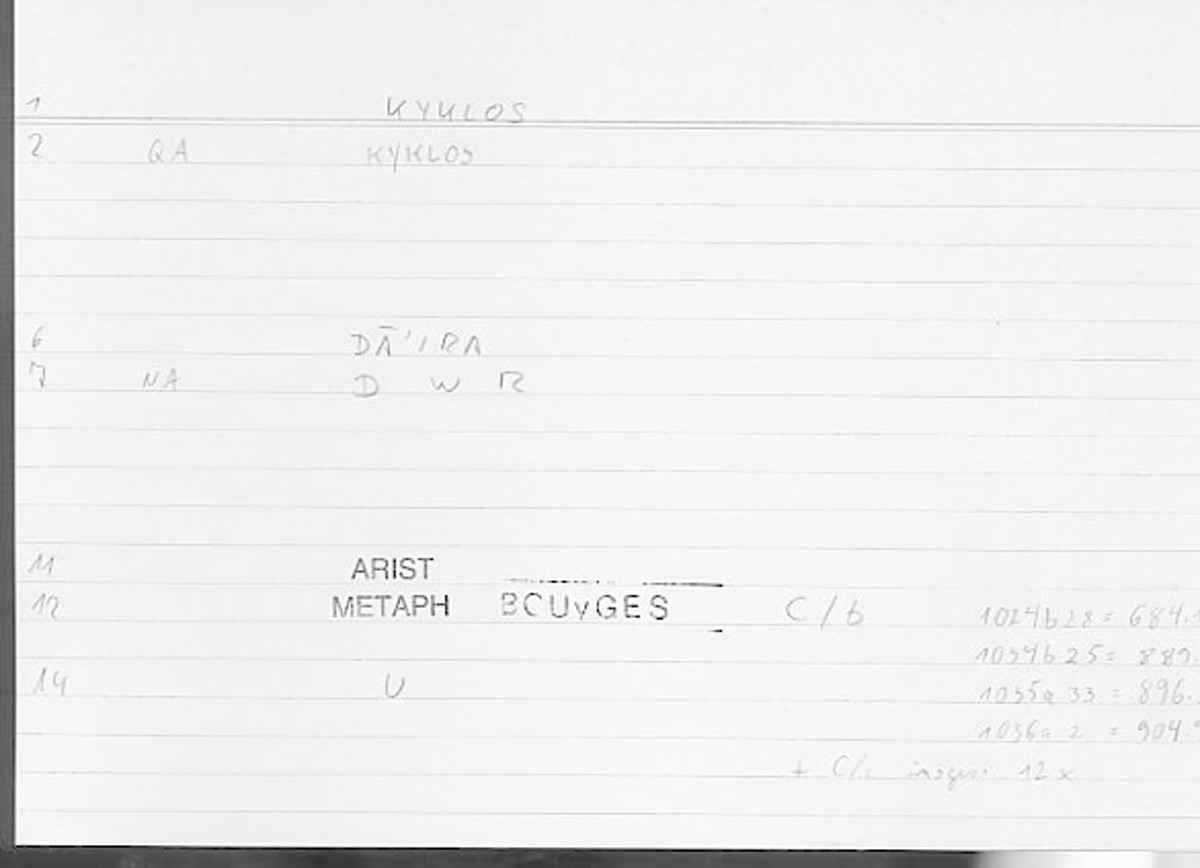 1 KYKLOS
2 QA KYKLOS
6 DĀ'IRA
7 NA D W R
11 ARIST
12 METAPH BOUyGES C/b 1024b28 = 684.
1034b25 =
14 U 1035a 33 = 896.
1036a 2 = 904.
+ C/c insges. 12 x